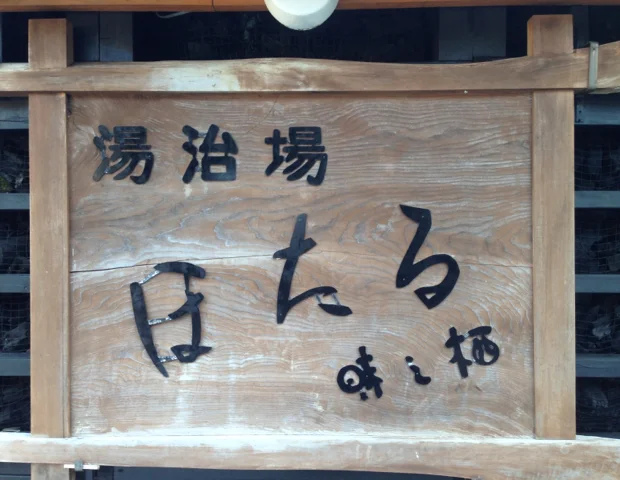 湯治場
ほたる
時之栖